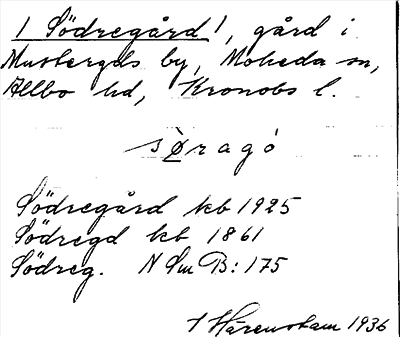 / Södregård /, gård i
Mustergds by, Moheda sn,
Allbo hd, Kronobs l.
sø̀ragó
Södregård kb 1925
Södregd kb 1861
Södreg. N Sm B: 175
T Härenstam 1936